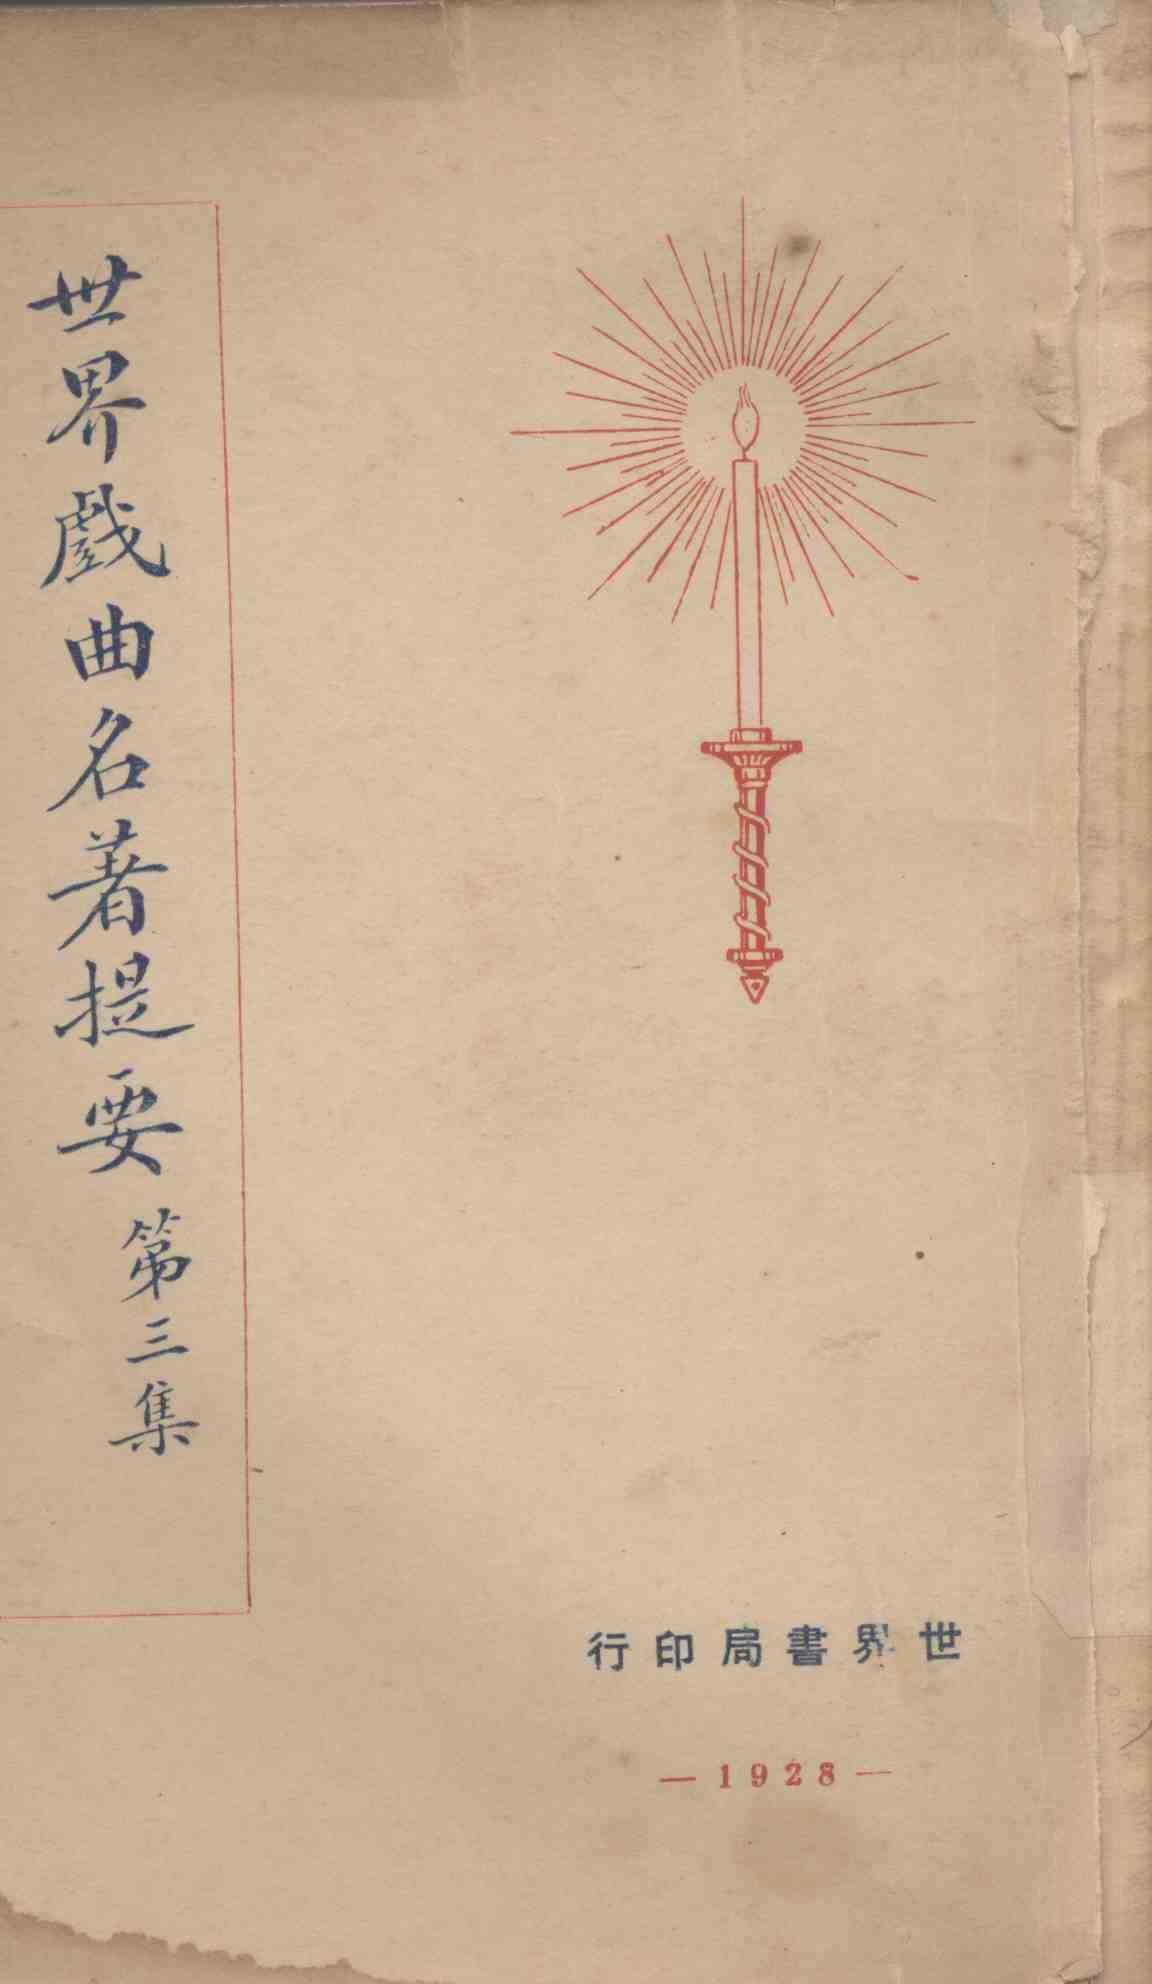 世界戲曲名著提要 第三集
世界書局印行
—1928—